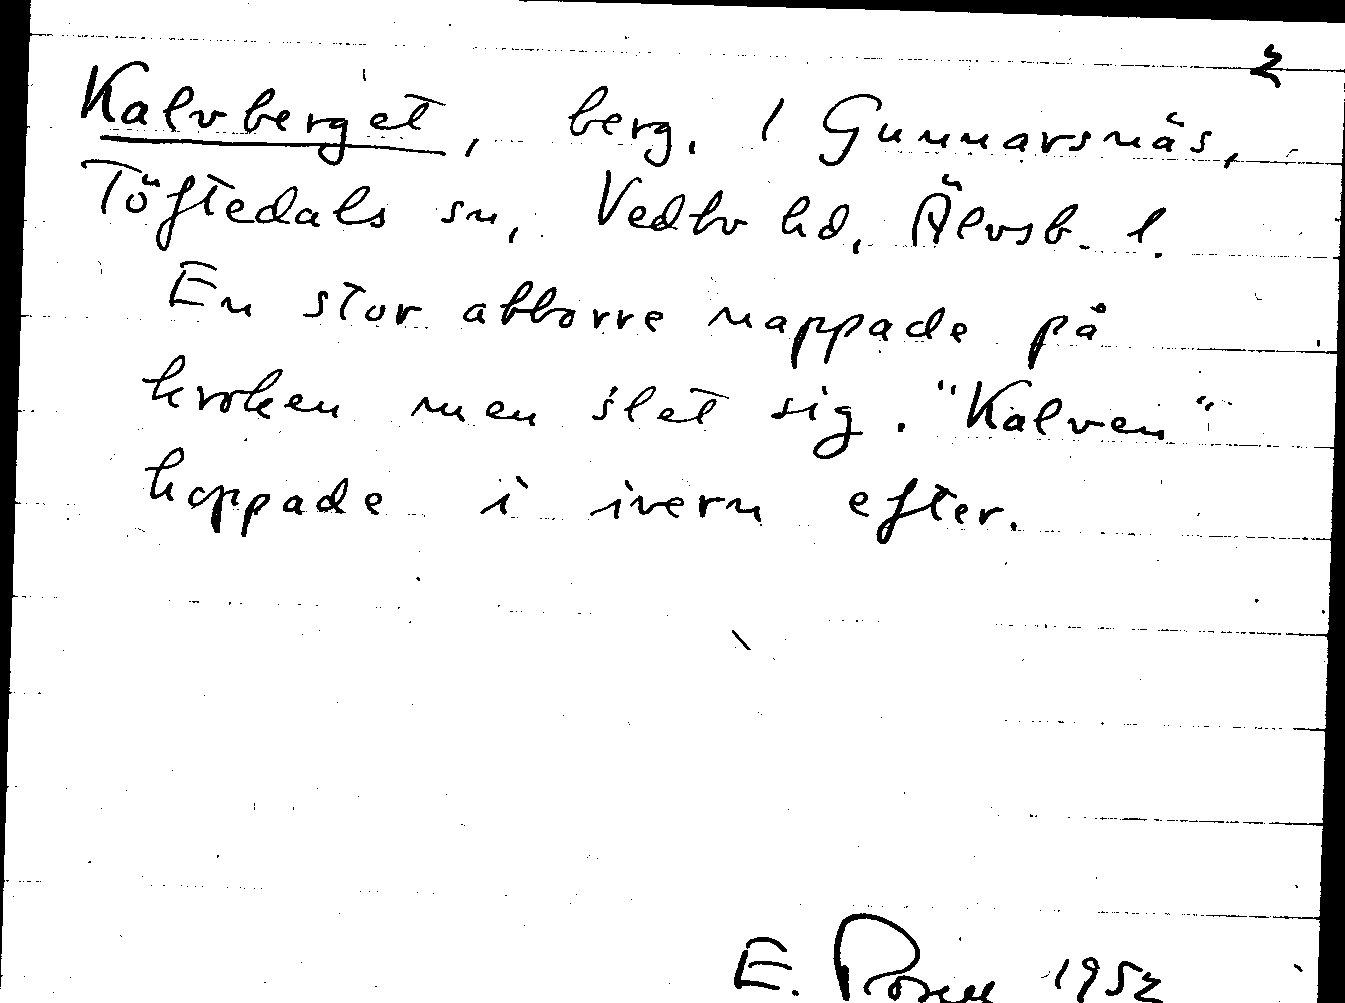 2
Kalvberget, berg. / Gunnarsnäs,
Töftedals sn, Vedbo hd, Älvsb. l.
En stor abborre nappade på
kroken men slet sig. "Kalven"
hoppade i ivern efter.
E. Rosell 1952